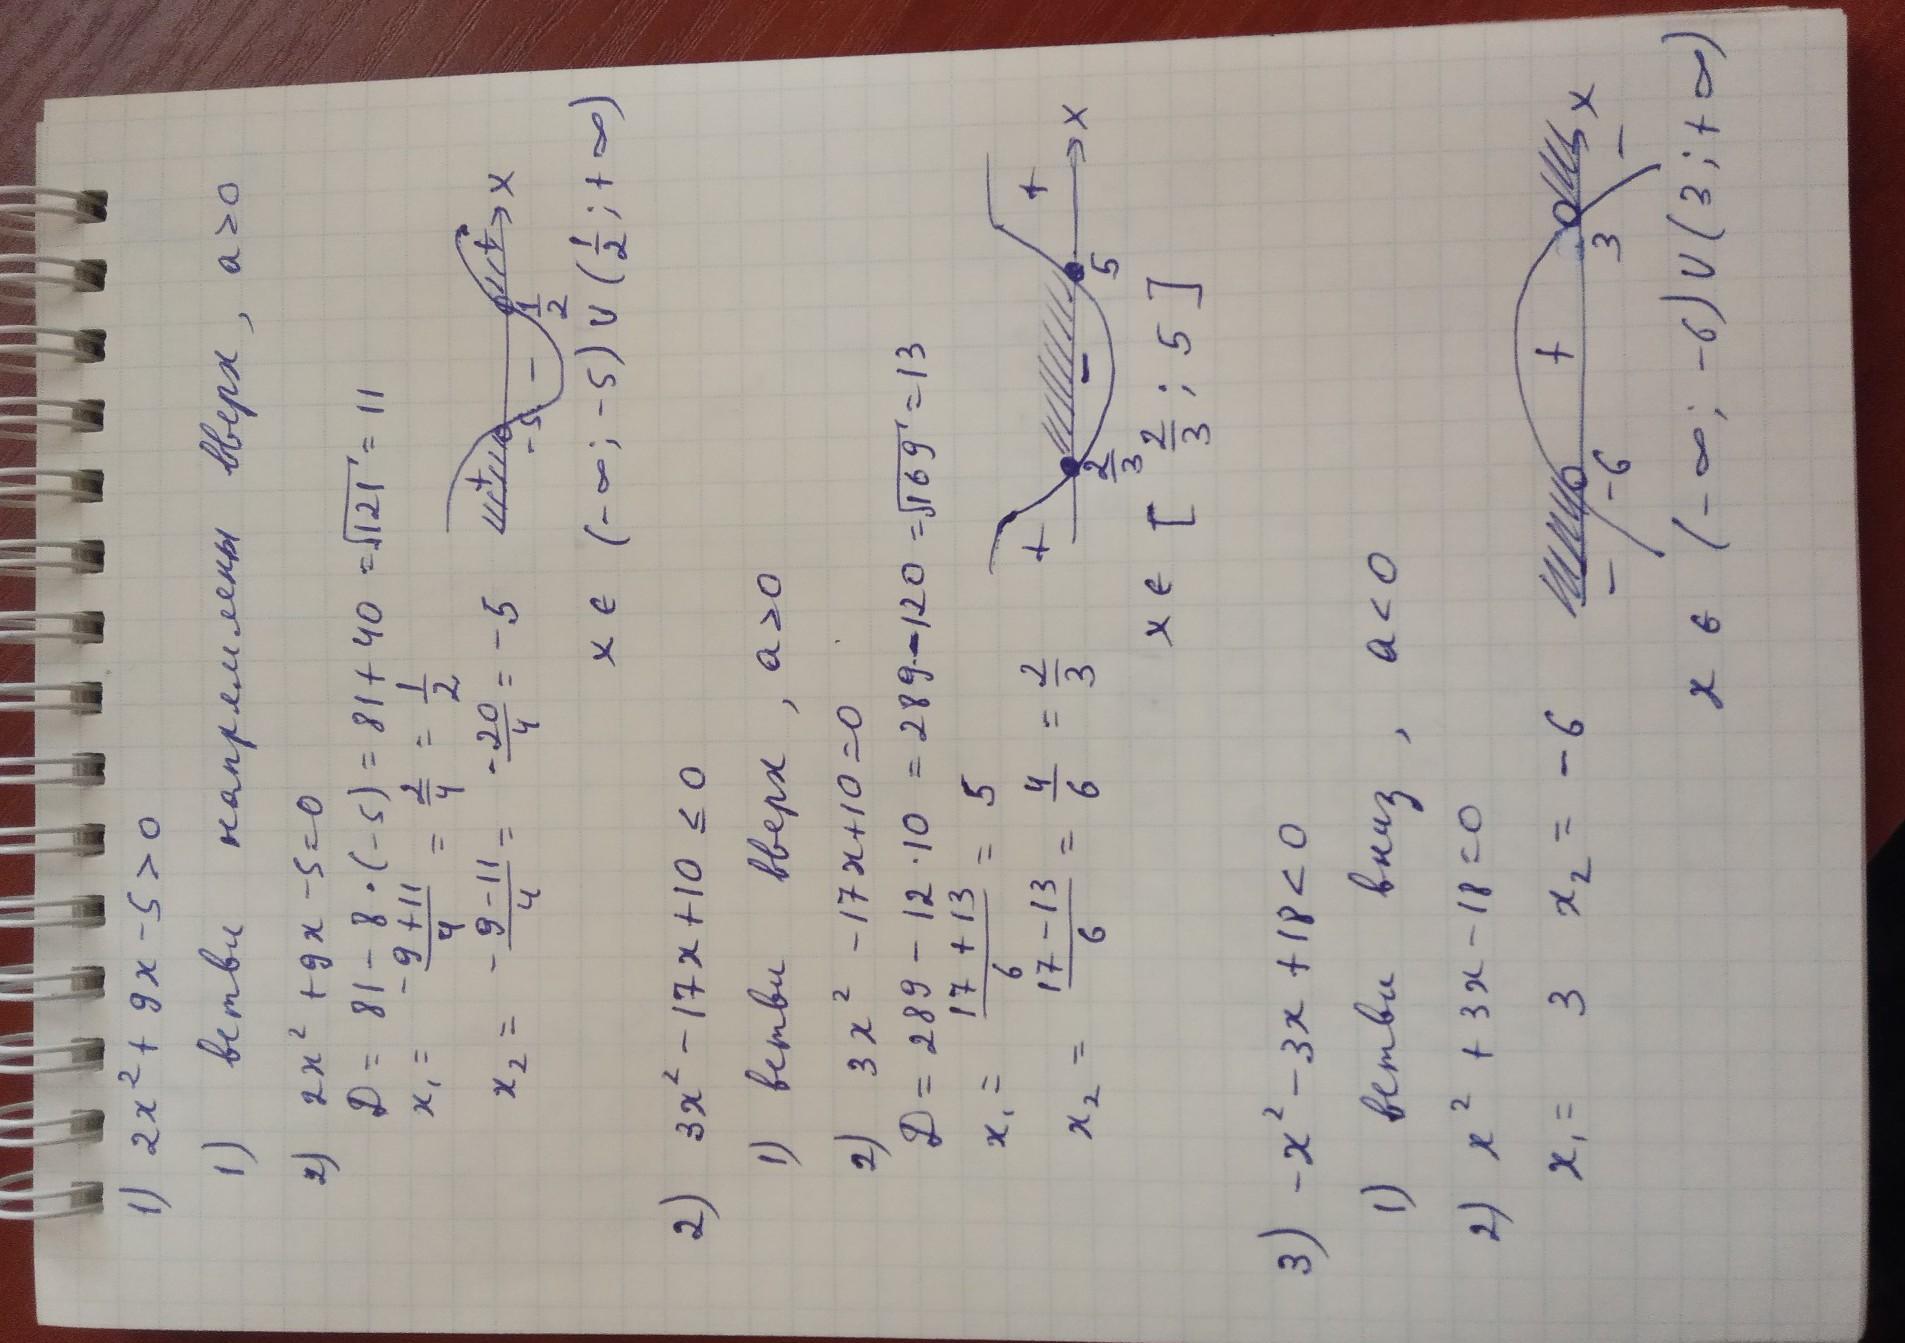 1) 2x² + 9x - 5 > 0
1) ветви направлены вверх, a > 0
2) 2x² + 9x - 5 = 0
D = 81 - 8 · (-5) = 81 + 40 = √121 = 11
x₁ = -9+11/4 = 2/4 = 1/2
x₂ = -9-11/4 = -20/4 = -5
+ -5 - 1/2 + x
x ∈ (-∞; -5) ∪ (1/2; +∞)
2) 3x² - 17x + 10 ≤ 0
1) ветви вверх, a > 0
2) 3x² - 17x + 10 = 0
D = 289 - 12 · 10 = 289 - 120 = √169 = 13
x₁ = 17+13/6 = 5
x₂ = 17-13/6 = 4/6 = 2/3
+ 2/3 - 5 + x
x ∈ [2/3; 5]
3) -x² - 3x + 18 < 0
1) ветви вниз, a < 0
2) x² + 3x - 18 = 0
x₁ = 3 x₂ = -6
- -6 + 3 - x
x ∈ (-∞; -6) ∪ (3; +∞)